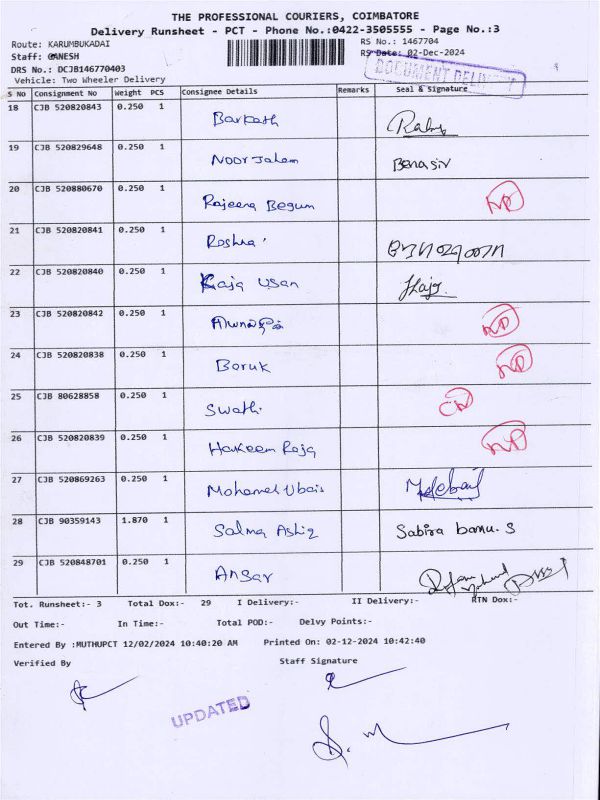 THE PROFESSIONAL COURIERS, COIMBATORE
Delivery Runsheet - PCT - Phone No.:0422-3505555 - Page No.:3
Route: KARUMBUKADAI RS No.: 1467704
Staff: GANESH RS Date: 02-Dec-2024
DRS No.: DCJB146770403
DOCUMENT DELIVERY
Vehicle: Two Wheeler Delivery
S No Consignment No Weight PCS Consignee Details Remarks Seal & Signature
18 CJB 520820843 0.250 1 Barkath
19 CJB 520829648 0.250 1 Noor Jahem Benasir
20 CJB 520880670 0.250 1 Rajeena Begum ND
21 CJB 520820841 0.250 1 Roshna
22 CJB 520820840 0.250 1 Kaja Usan
23 CJB 520820842 0.250 1 ND
24 CJB 520820838 0.250 1 Boruk ND
25 CJB 80628858 0.250 1 Swathi
26 CJB 520820839 0.250 1 Hakeem Raja ND
27 CJB 520869263 0.250 1 Mohamed Ubais
28 CJB 90359143 1.870 1 Salma Ashiq Sabira banu. S
29 CJB 520848701 0.250 1 Ansar
Tot. Runsheet:- 3 Total Dox:- 29 I Delivery:- II Delivery:- RTN Dox:-
Out Time:- In Time:- Total POD:- Delvy Points:-
Entered By :MUTHUPCT 12/02/2024 10:40:20 AM Printed On: 02-12-2024 10:42:40
Verified By Staff Signature
UPDATED